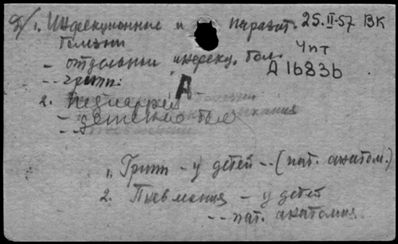 1. Инфекционные и паразит. 25.II-57 ВК
болезни Чпт
- отдельные инфекц. бол. А 16836
-- грипп:
А
2. Педиатрия
- детские бол
1. Грипп - у детей -- (пат. анатом.)
2. Пневмония - у детей
-- пат. анатомия